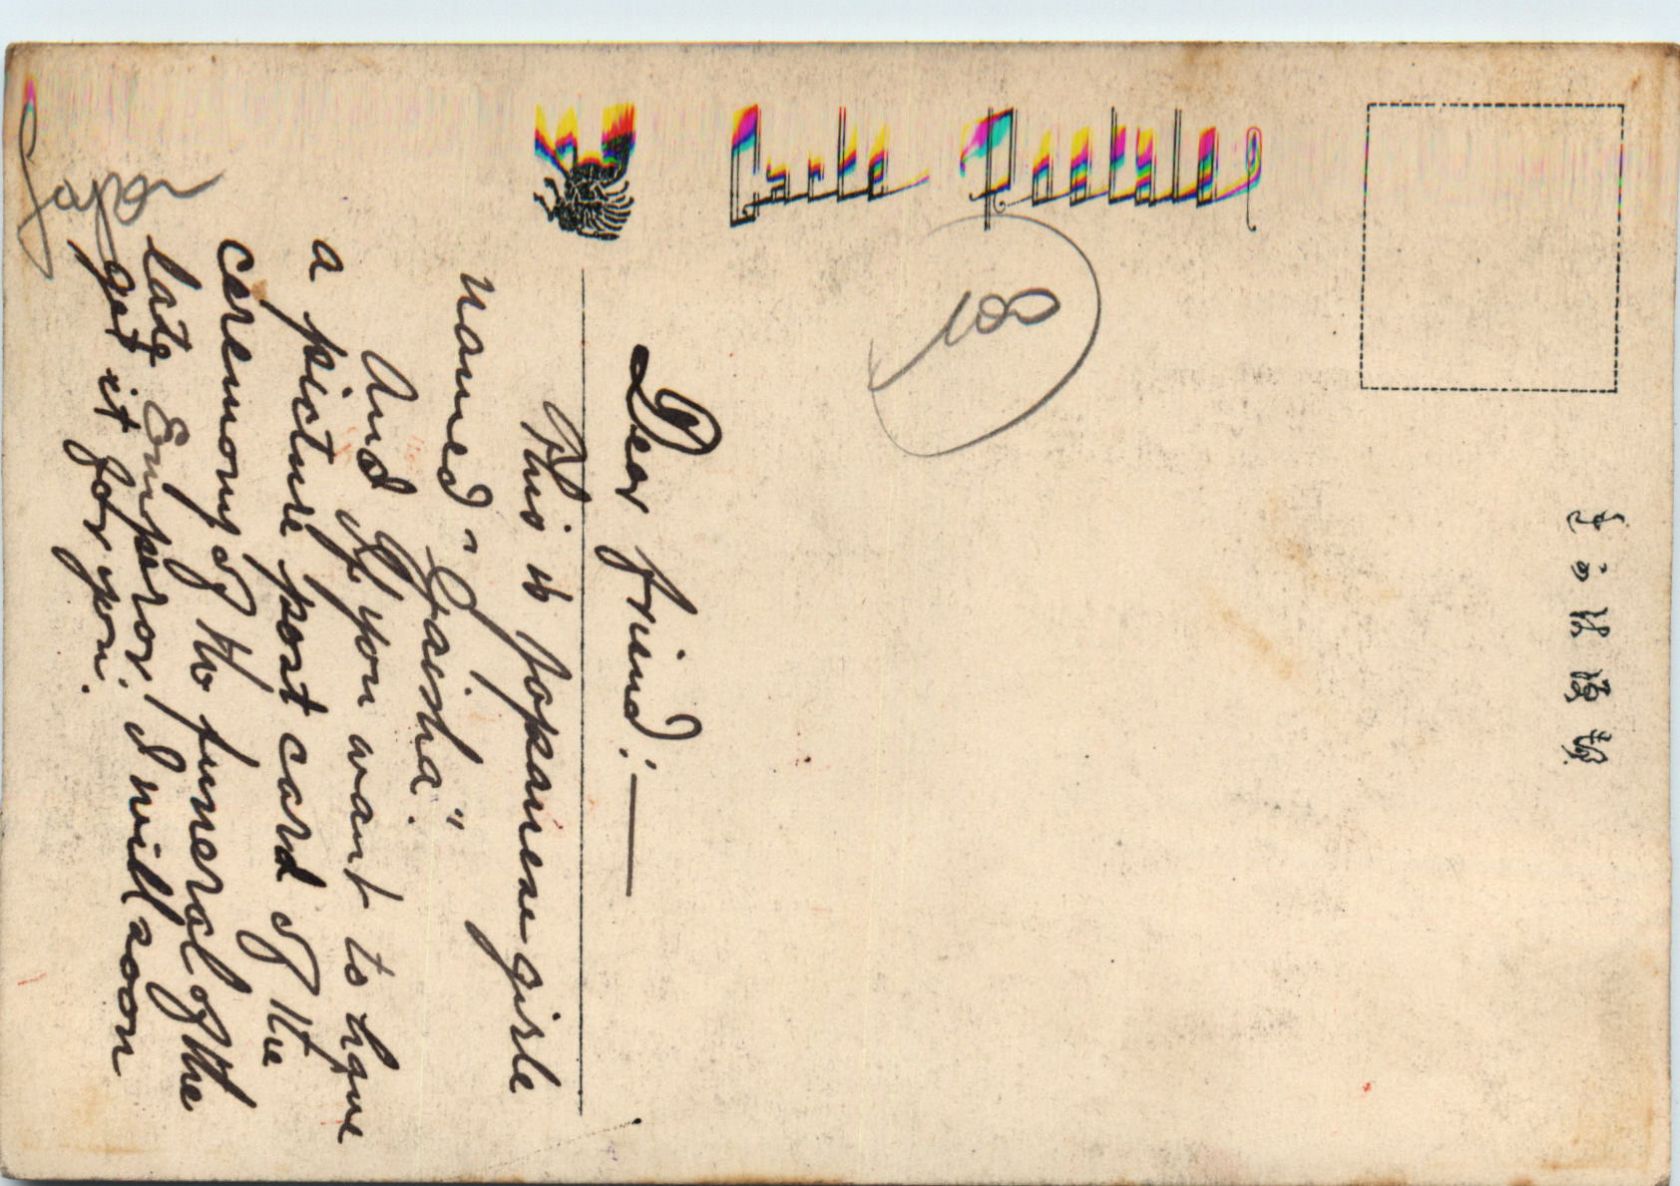 Carte Postale
Dear friend:—
This is Japanese girle
named "Gaisha".
And If you want to have
a picture post card of the
ceremony of the funeral of the
late Emperor, I will soon
get it for you.
Japan